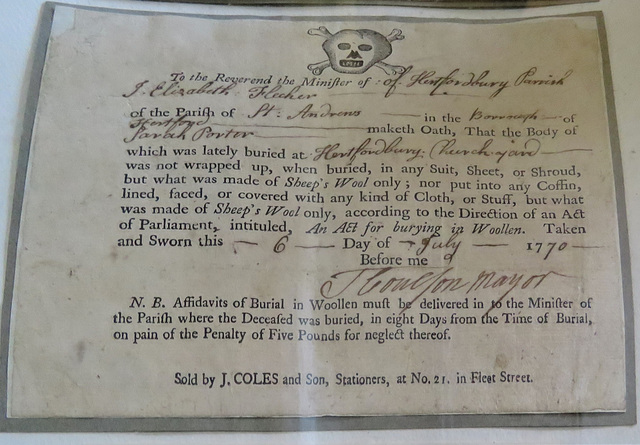 To the Reverend the Minister of of Hertfordbury Parish
I Elizabeth Flecher
of the Parish of St. Andrews in the Borrough of
Hertford
Sarah Porter maketh Oath, That the Body of
which was lately buried at Hertfordbury Church yard
was not wrapped up, when buried, in any Suit, Sheet, or Shroud,
but what was made of Sheep's Wool only; nor put into any Coffin,
lined, faced, or covered with any kind of Cloth, or Stuff, but what
was made of Sheep's Wool only, according to the Direction of an Act
of Parliament, intituled, An Act for burying in Woollen. Taken
and Sworn this 6 Day of July 1770
Before me
J Coulson Mayor
N. B. Affidavits of Burial in Woollen must be delivered in to the Minister of
the Parish where the Deceased was buried, in eight Days from the Time of Burial,
on pain of the Penalty of Five Pounds for neglect thereof.
Sold by J. COLES and Son, Stationers, at No. 21. in Fleet Street.